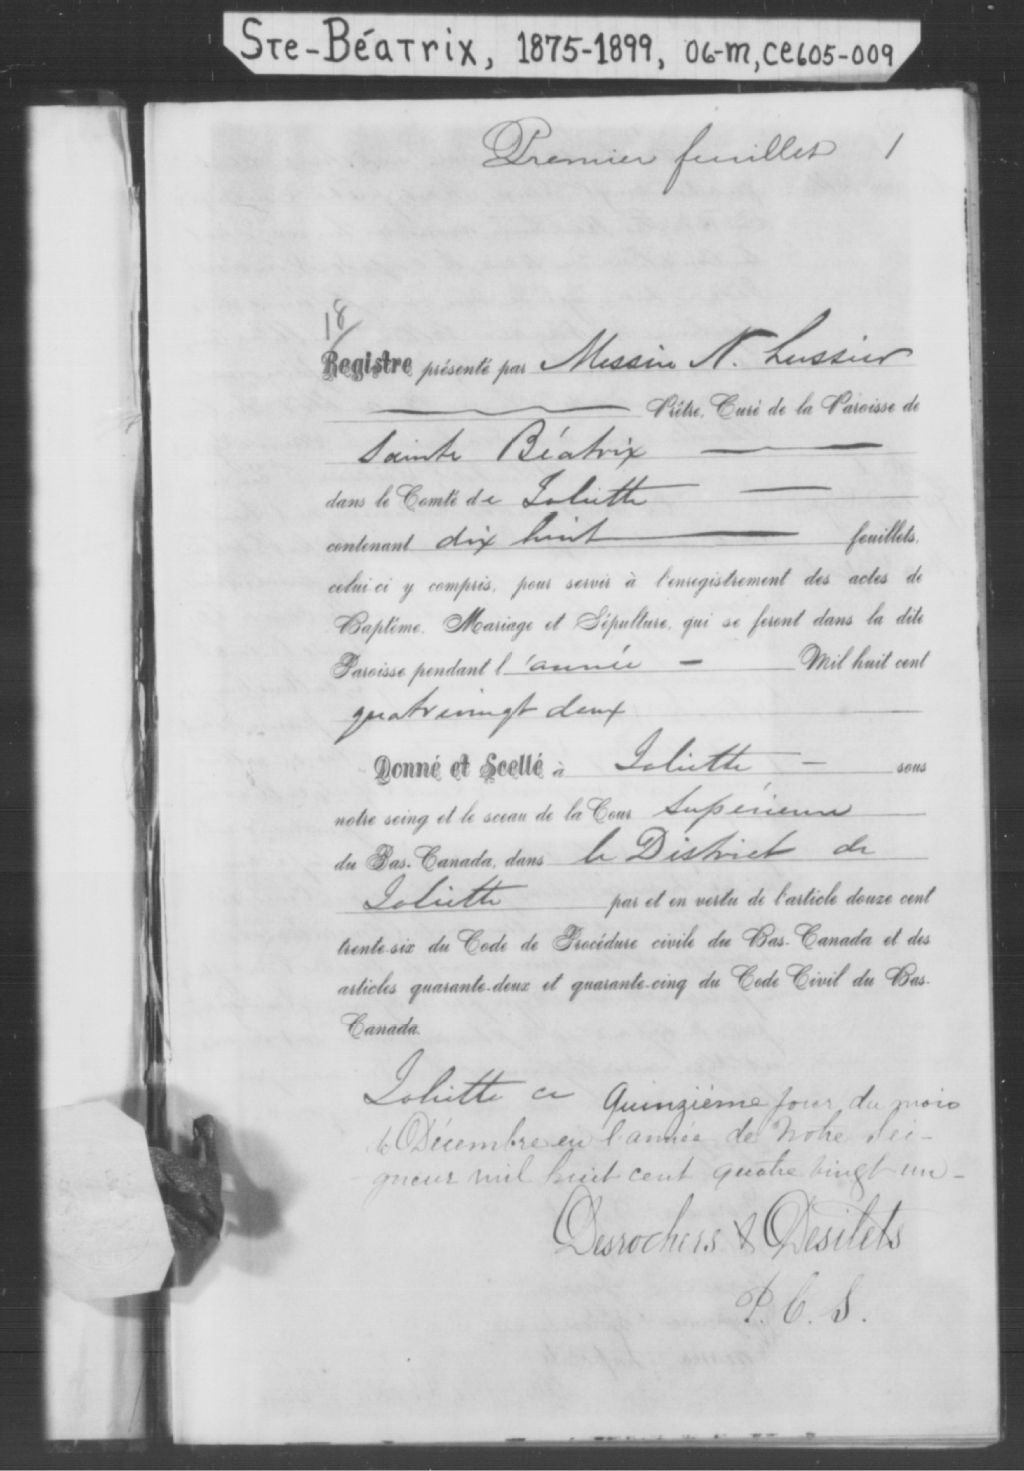 Ste-Béatrix, 1875-1899, 06-M, CE605-009
Premier feuillet 1
18
Registre présenté par Messire N. Lussier
Prêtre, Curé de la Paroisse de
Sainte Béatrix
dans le Comté de Joliette
contenant dix huit feuillets,
celui-ci y compris, pour servir à l'enregistrement des actes de
Baptême, Mariage et Sépulture, qui se feront dans la dite
Paroisse pendant l'année - Mil huit cent
quatrevingt deux
Donné et Scellé à Joliette - sous
notre seing et le sceau de la Cour Supérieure
du Bas-Canada, dans le District de
Joliette par et en vertu de l'article douze cent
trente-six du Code de Procédure civile du Bas-Canada et des
articles quarante-deux et quarante-cinq du Code Civil du Bas-
Canada.
Joliette ce Quinzième jour du mois
de Décembre en l'année de Notre Sei-
gneur mil huit cent quatre vingt un -
Desrochers & Desilets
P. C. S.